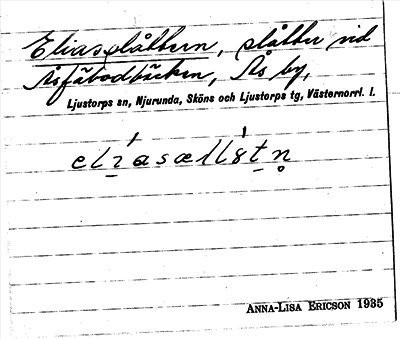 Eliasslåttern, slåtter vid
Åsfäbodbäcken, Ås by,
Ljustorps sn, Njurunda, Sköns och Ljustorps tg, Västernorrl. l.
ANNA-LISA ERICSON 1935